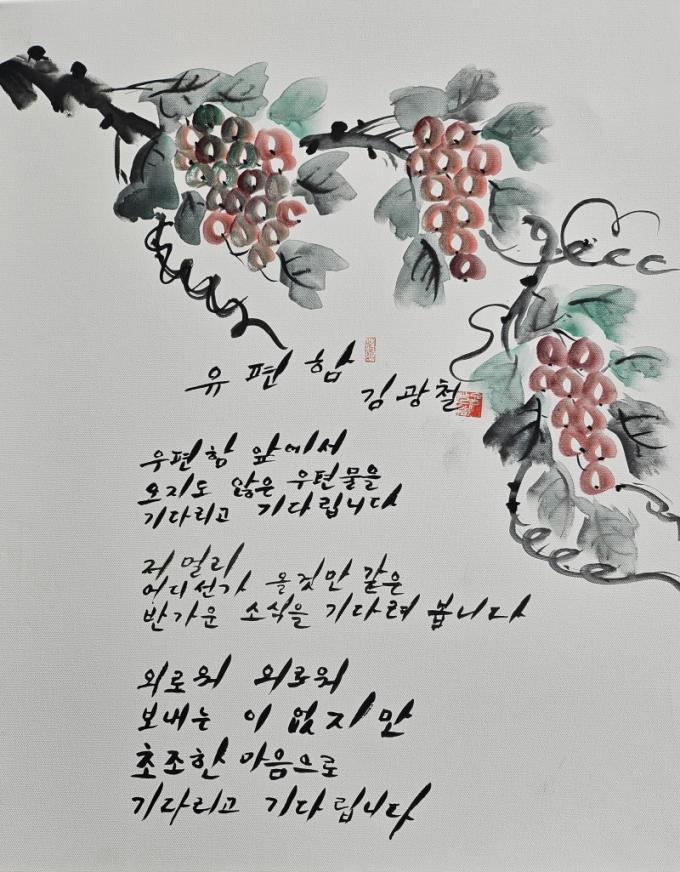 유편함
김광철
우편함 앞에서
오지도 않은 우편물을
기다리고 기다립니다
저 멀리
어디선가 올것만 같은
반가운 소식을 기다려 봅니다
외로워 외로워
보내는 이 없지만
초조한 마음으로
기다리고 기다립니다